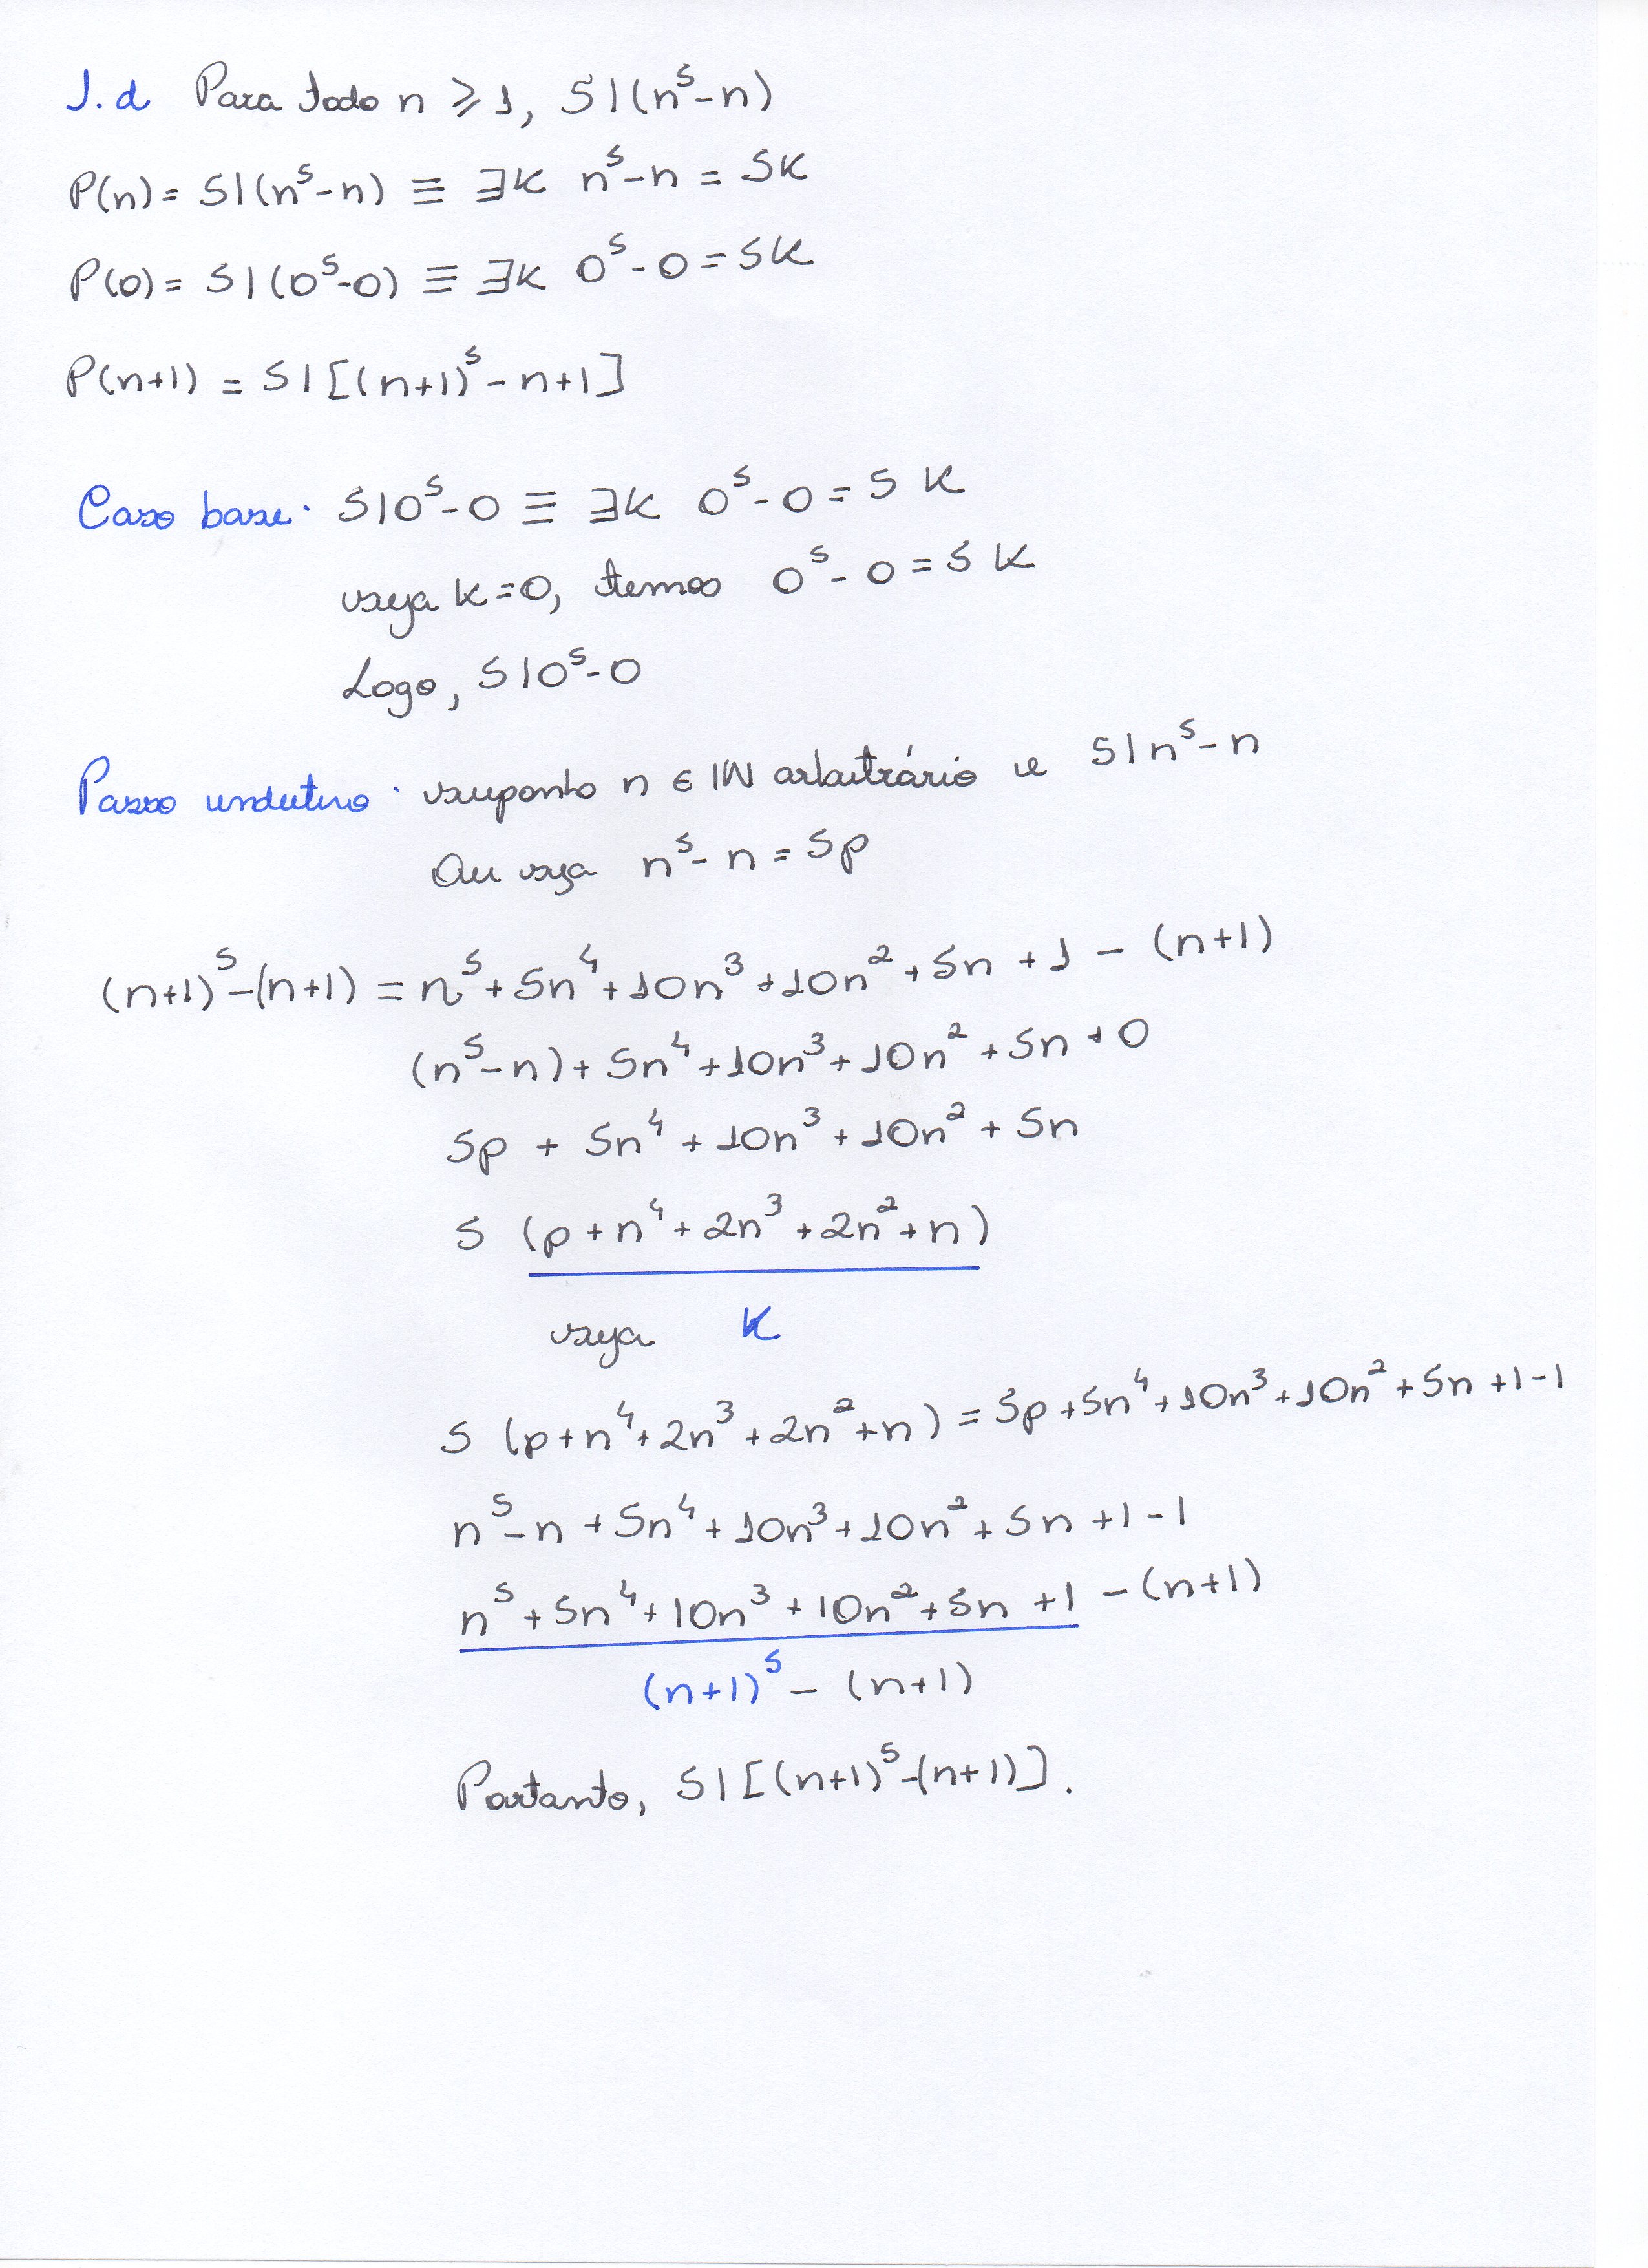 1.d Para todo n ⩾ 1, 5|(n⁵-n)
P(n) = 5|(n⁵-n) ≡ ∃k n⁵-n = 5k
P(0) = 5|(0⁵-0) ≡ ∃k 0⁵-0 = 5k
P(n+1) = 5|[(n+1)⁵-n+1]
Caso base. 5|0⁵-0 ≡ ∃k 0⁵-0 = 5k
seja k=0, temos 0⁵-0 = 5k
Logo, 5|0⁵-0
Passo indutivo. suponto n ∈ IN arbitrário e 5|n⁵-n
Ou seja n⁵-n = 5p
(n+1)⁵-(n+1) = n⁵+5n⁴+10n³+10n²+5n+1-(n+1)
(n⁵-n)+5n⁴+10n³+10n²+5n+0
5p + 5n⁴+10n³+10n²+5n
5 (p+n⁴+2n³+2n²+n)
seja k
5 (p+n⁴+2n³+2n²+n) = 5p+5n⁴+10n³+10n²+5n+1-1
n⁵-n+5n⁴+10n³+10n²+5n+1-1
n⁵+5n⁴+10n³+10n²+5n+1-(n+1)
(n+1)⁵-(n+1)
Portanto, 5|[(n+1)⁵-(n+1)].